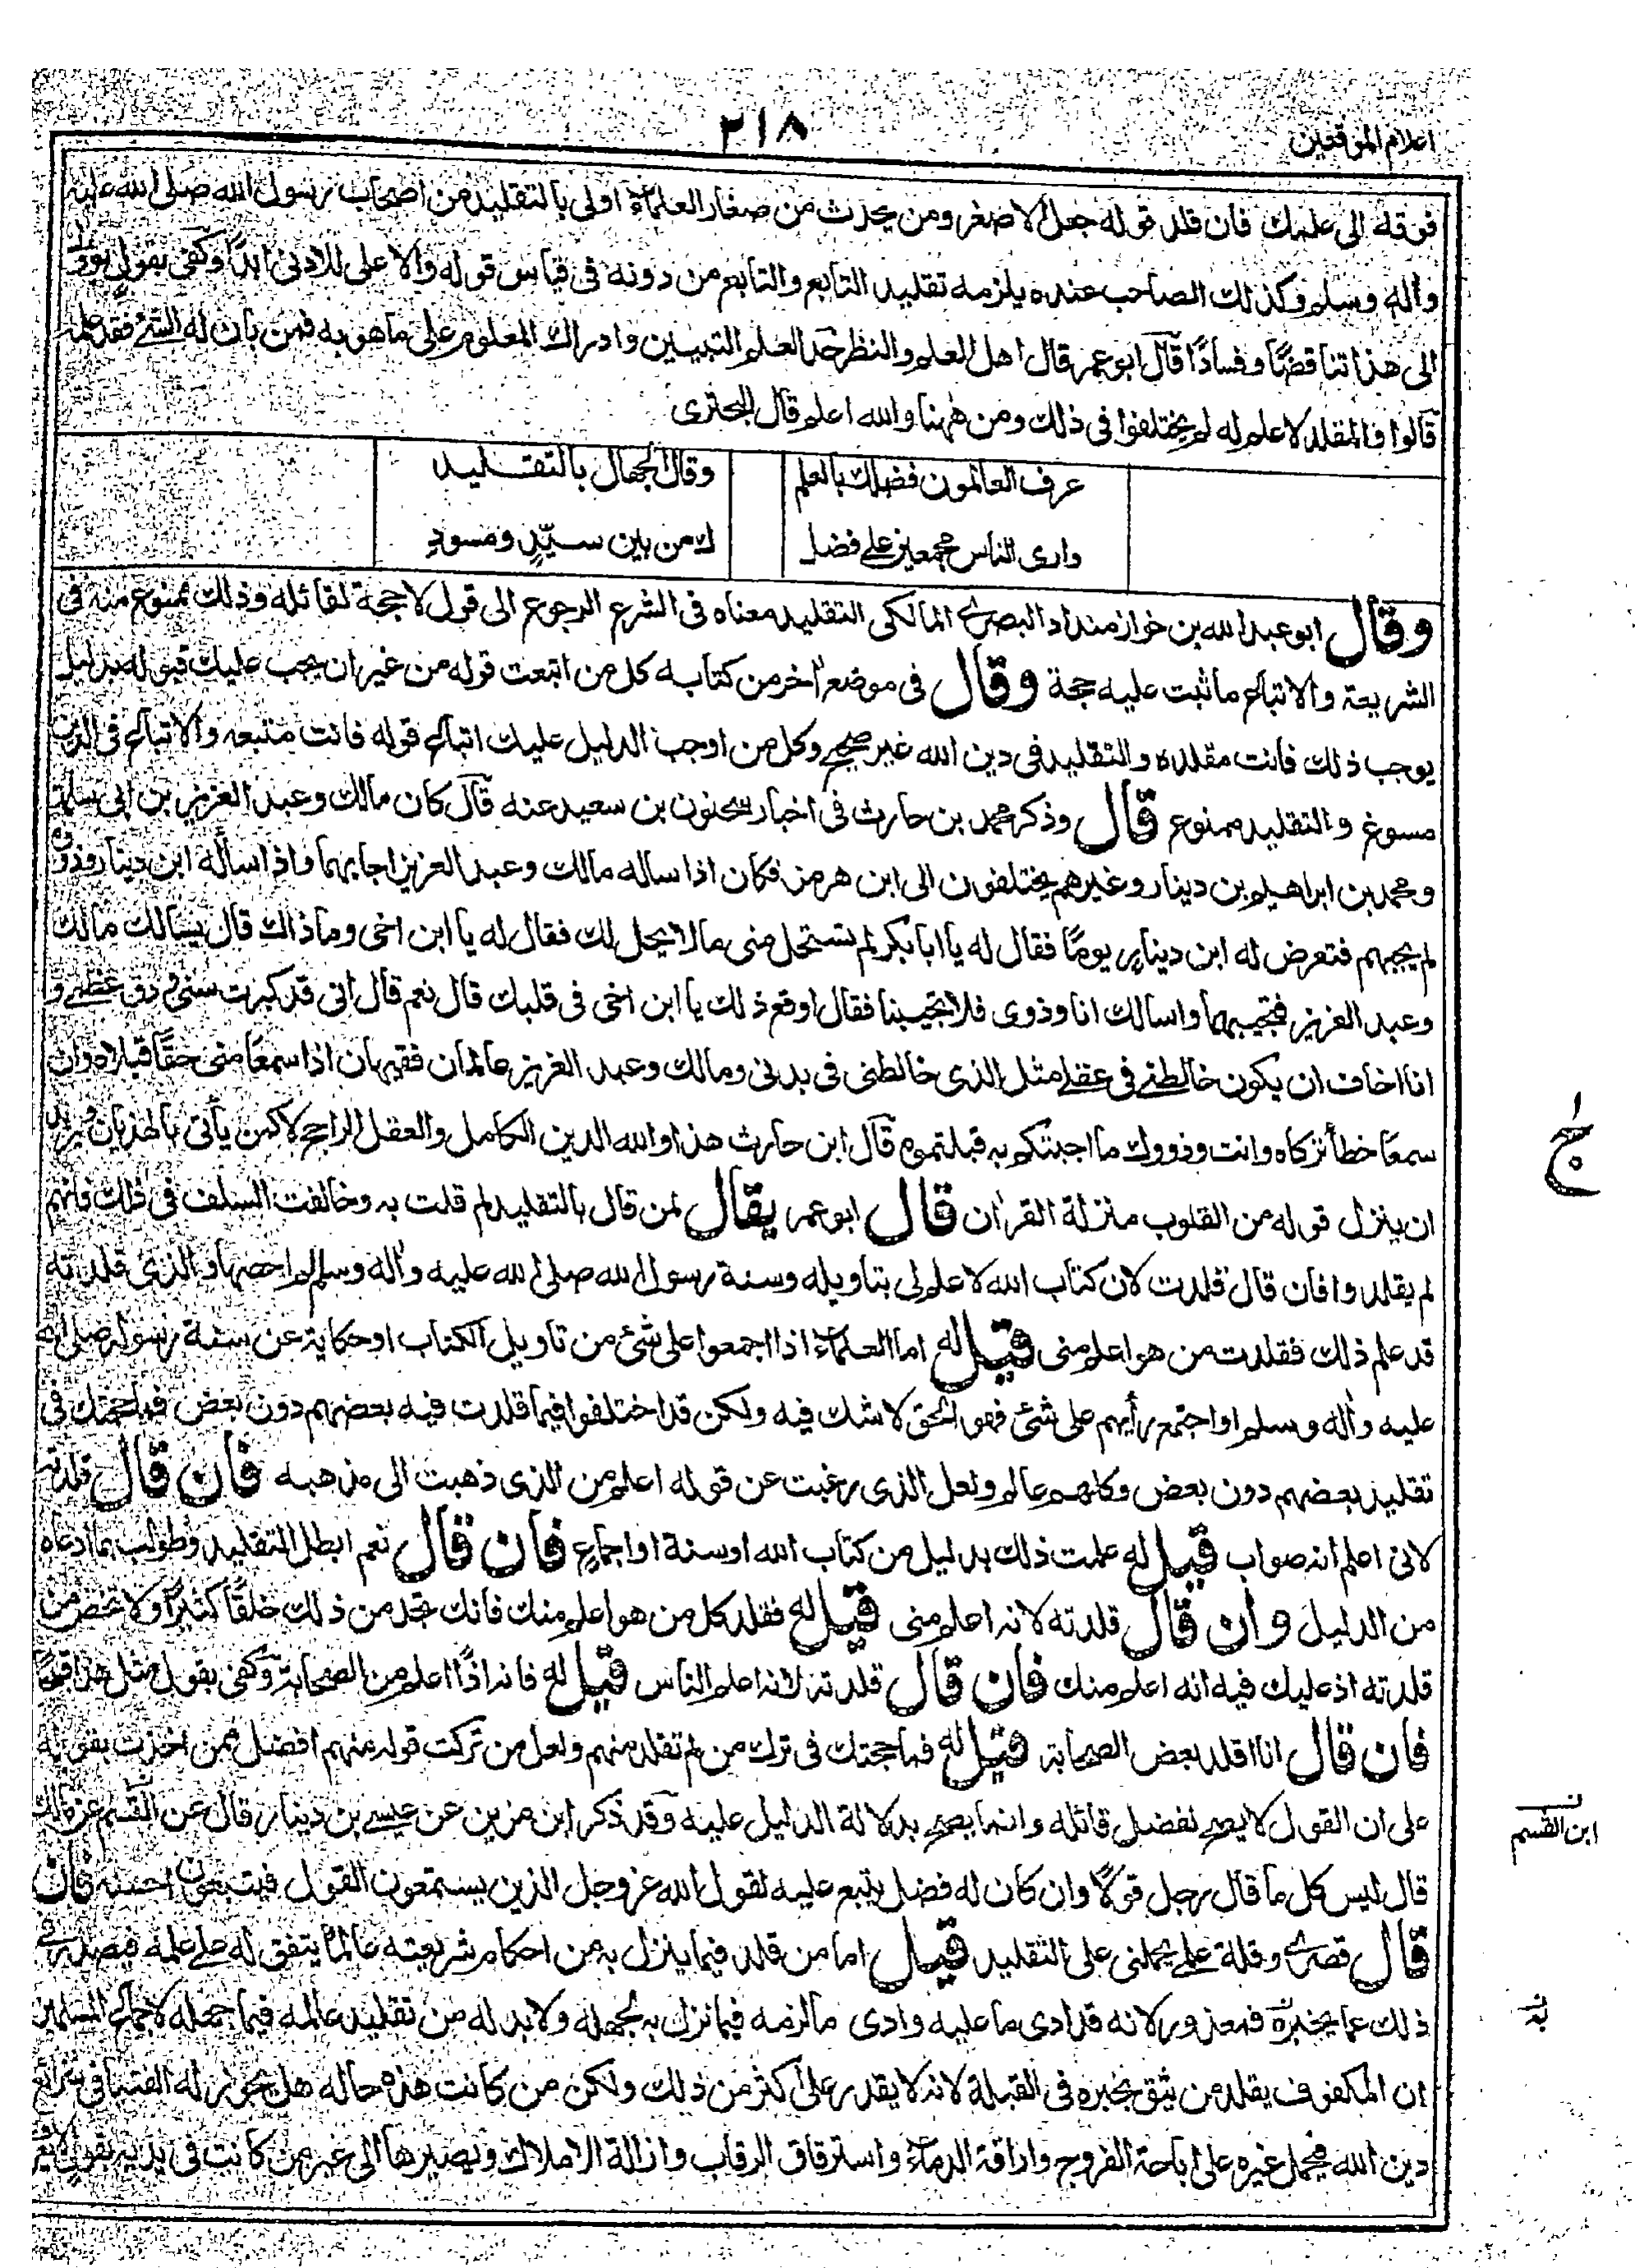 ٢١٨
اعلام الموقعين
فوقه الى علمك فان قلد قوله جعل الاصغر ومن يحدث من صغار العلماء اولى بالتقليد من اصحاب رسول الله صلى الله عليه
واله وسلم وكذلك الصاحب عنده يلزمه تقليد التابع والتابع من دونه فى قياس قوله والا على للادنى ابدًا وكفى بقول يؤول
الى هذا تناقضًا وفسادًا قال ابو عمر قال اهل العلم والنظر حد العلم التبيين وادراك المعلوم على ما هو به فمن بان له الشئ فقد علمه
قالوا والمقلد لا علم له لم يختلفوا فى ذلك ومن ههنا والله اعلم قال البحترى
عرف العالمون فضلك بالعلم وقال الجهال بالتقليد
وارى الناس مجمعين على فضل ك من بين سيّدٍ ومسودِ
وقال ابو عبد الله بن خواز منداد البصرى المالكى التقليد معناه فى الشرع الرجوع الى قول لا حجة لقائله وذلك ممنوع منه فى
الشريعة والاتباع ما ثبت عليه حجة وقال فى موضع اخر من كتابه كل من اتبعت قوله من غير ان يجب عليك قبوله بدليل
يوجب ذلك فانت مقلده والتقليد فى دين الله غير صحيح وكل من اوجب الدليل عليك اتباع قوله فانت متبعه والاتباع فى الدين
مسوغ والتقليد ممنوع قال وذكر محمد بن حارث فى اخبار سحنون بن سعيد عنه قال كان مالك وعبد العزيز بن ابى سلمة
ومحمد بن ابراهيم بن دينار وغيرهم يختلفون الى ابن هرمز فكان اذا ساله مالك وعبد العزيز اجابهما واذا ساله ابن دينار وذووه
لم يجبهم فتعرض له ابن دينار يومًا فقال له يا ابا بكر لم تستحل منى ما لا يحل لك فقال له يا ابن اخى وما ذاك قال يسالك مالك
وعبد العزيز فتجيبهما واسالك انا وذوى فلا تجيبنا فقال اوقع ذلك يا ابن اخى فى قلبك قال نعم قال انى قد كبرت سنى ودق عظمى و
انا اخاف ان يكون خالطنى فى عقلى مثل الذى خالطنى فى بدنى ومالك وعبد العزيز عالمان فقيهان اذا سمعا منى حقًا قبلاه وان
سمعا خطأ تركاه وانت وذووك ما اجبتكم به قبلتموه قال ابن حارث هذا والله الدين الكامل والعقل الراجح لا كمن يأتى بالهذيان ويريد
ان ينزل قوله من القلوب منزلة القران قال ابو عمر يقال لمن قال بالتقليد لم قلت به وخالفت السلف فى ذلك فانهم
لم يقلدوا فان قال قلدت لان كتاب الله لا علم لى بتاويله وسنة رسول الله صلى الله عليه واله وسلم لم احصها والذى قلدته
قد علم ذلك فقلدت من هو اعلم منى قيل له اما العلماء اذا اجمعوا على شئ من تاويل الكتاب او حكاية عن سنة رسوله صلى الله
عليه واله وسلم او اجتمع رأيهم على شئ فهو الحق لا شك فيه ولكن قد اختلفوا فيما قلدت فيه بعضهم دون بعض فما حجتك فى
تقليد بعضهم دون بعض وكلهم عالم ولعل الذى رغبت عن قوله اعلم من الذى ذهبت الى مذهبه فان قال قلدته
لانى اعلم انه صواب قيل له علمت ذلك بدليل من كتاب الله او سنة او اجماع فان قال نعم ابطل التقليد وطولب بما ادعاه
من الدليل وان قال قلدته لانه اعلم منى قيل له فقلد كل من هو اعلم منك فانك تجد من ذلك خلقًا كثيرًا ولا تخض من
قلدته اذ عليك فيه انه اعلم منك فان قال قلدته لانه اعلم الناس قيل له فانه اذًا اعلم من الصحابة وكفى بقول مثل هذا قبحًا
فان قال انا اقلد بعض الصحابة قيل له فما حجتك فى ترك من لم تقلد منهم ولعل من تركت قوله منهم افضل ممن اخذت بقوله
على ان القول لا يصح لفضل قائله وانما يصح بدلالة الدليل عليه وقد ذكر ابن مزين عن عيسى بن دينار قال عن القسم عن مالك
ابن القسم
قال ليس كل ما قال رجل قولًا وان كان له فضل يتبع عليه لقول الله عز وجل الذين يستمعون القول فيتبعون احسنه فان
قال قصرى وقلة علمى يحملنى على التقليد قيل اما من قلد فيما ينزل به من احكام شريعته عالمًا يتفق له على علمه فيصدر فى
ذلك عما يخبره فمعذور لانه قد ادى ما عليه وادى ما لزمه فيما نزل به لجهله ولا بد له من تقليد عالمه فيما جهله لاجماع المسلمين
به
ان المكفوف يقلد من يثق بخبره فى القبلة لانه لا يقدر على اكثر من ذلك ولكن من كانت هذه حاله هل يجوز له الفتيا فى شرائع
دين الله فيحمل غيره على اباحة الفروج واراقة الدماء واسترقاق الرقاب وازالة الاملاك ويصيرها الى غير من كانت فى يديه بقول